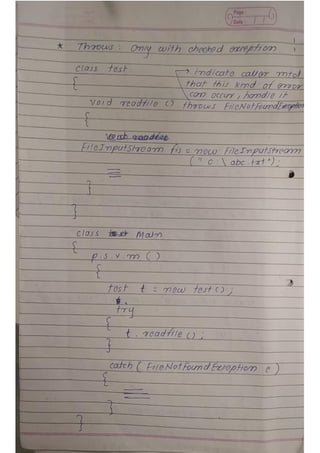 Page :
Date :
* Throws : Only with checked exception
class test
→ indicate caller mtd
{
that this kind of error
can occur, handle it
void readfile () throws FileNotFoundException
{
FileInputStream fis = new FileInputStream
(" c : \ abc.txt");
}
}
class Main
{
p.s.v.m ()
{
test t = new test();
try
{
t. readfile ();
}
catch ( FileNotFoundException e )
{
}
}